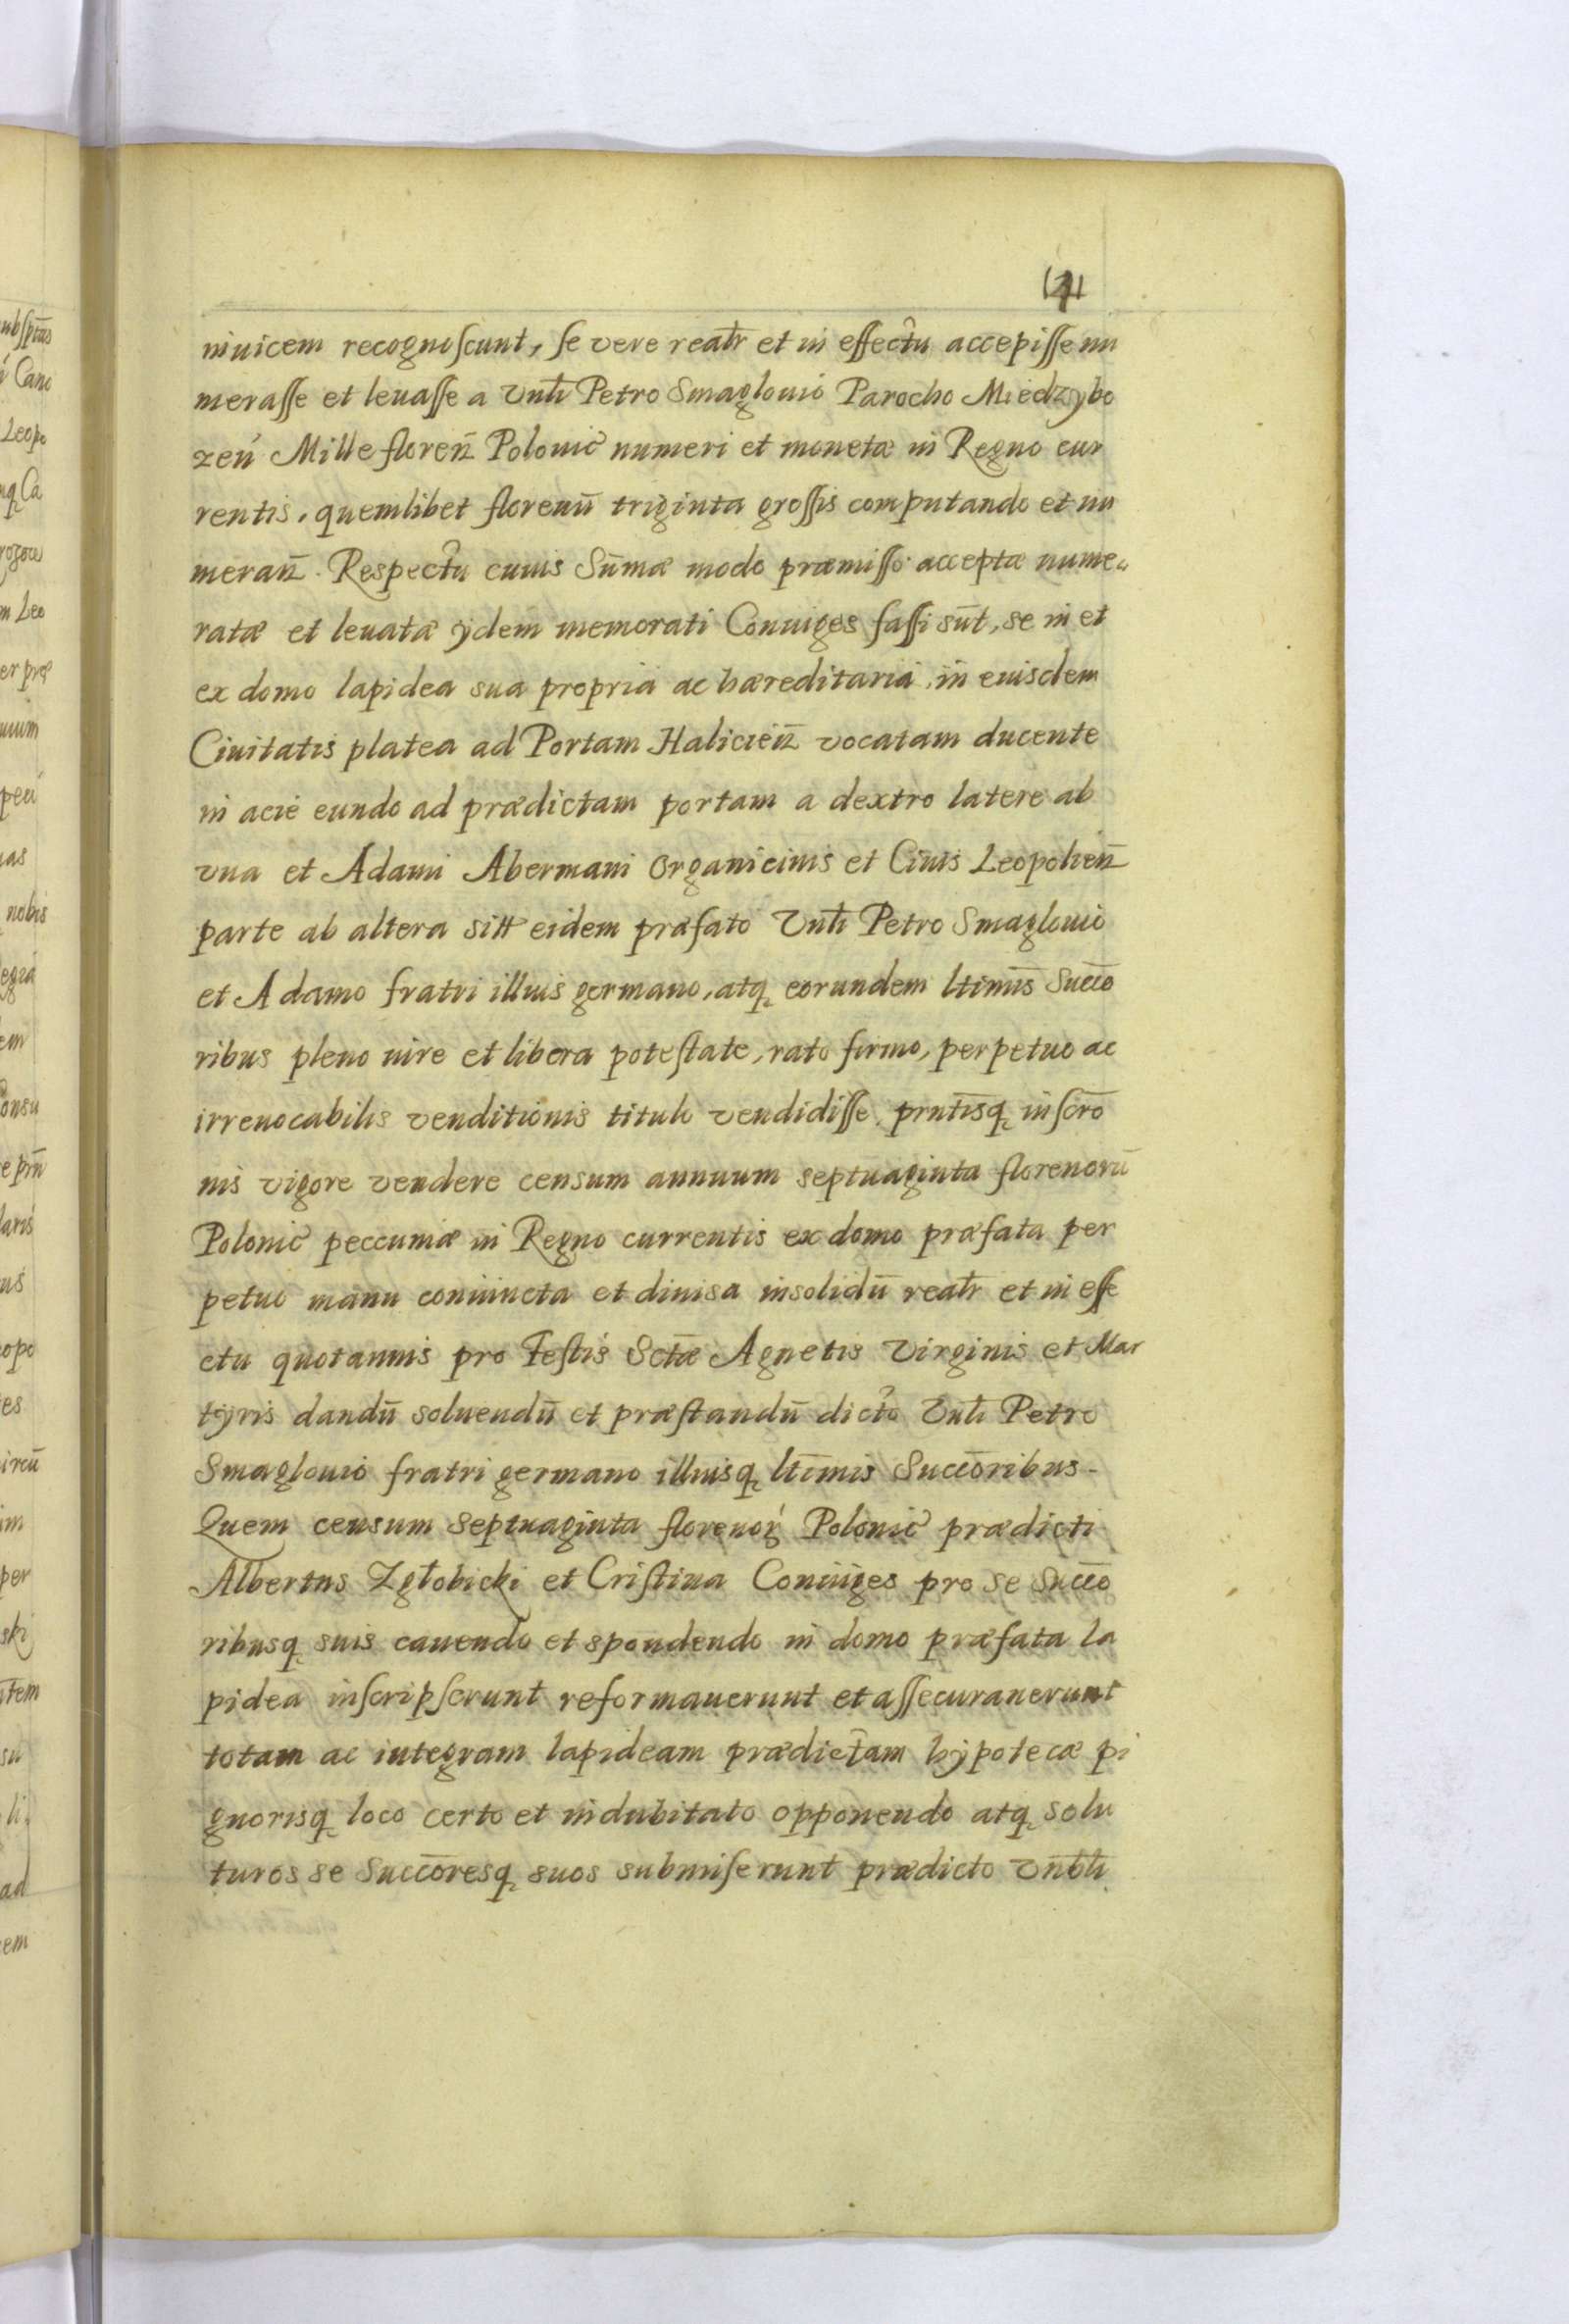 inuicem recognoscunt, se vere realr̄ et in effectu accepisse nu
merasse et leuasse a Vnli Petro Smaglouić Parocho Miedzybo
zeń Mille floren̄ Polonić numeri et monetæ in Regno cur
rentis, quemlibet florenū triginta grossis computando et nu
meran̄. Respectu cuius Sūmæ modo præmisso acceptæ nume„
ratæ et leuatæ ydem memorati Coniuges fassi sūt, se in et
ex domo lapidea sua propria ac hæreditaria, in eiusdem
Ciuitatis platea ad Portam Halicień vocatam ducente
in acie eundo ad prædictam portam a dextro latere ab
vna et Adami Abermani Organicinis et Ciuis Leopolien̄
parte ab altera sitt eidem præfato Vnli Petro Smaglouić
et Adamo fratri illius germano, atq, eorundem ltimis Succo
ribus pleno iure et libera potestate, rato firmo, perpetuo ac
irreuocabilis venditionis titulo vendidisse, prn̄tisq, inscr̄o
nis vigore vendere censum annuum septuaginta florenorū
Polonić peccuniæ in Regno currentis ex domo præfata per
petuo manu coniuncta et diuisa insolidū realr̄ et in effe
ctu quotannis pro Festis Sctæ Agnetis Virginis et Mar
tyris dandū soluendū et præstandū dicto Vnli Petro
Smaglouić fratri germano illiusq, ltimis Succoribus-
Quem censum septuaginta florenoꝝ Polonić prædicti
Albertus Zgłobicki et Cristina Coniuges pro se Succo
ribusq, suis cauendo et spondendo in domo præfata la
pidea inscripserunt reformauerunt et assecurauerunt
totam ac integram lapideam prædictam hypotecæ pi
gnorisq, loco certo et indubitato opponendo atq, solu
turos se Succoresq, suos submiserunt prædicto Vnbli